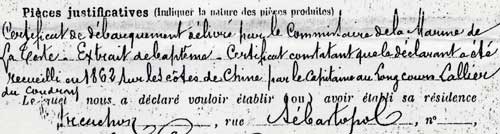 Pièces justificatives (Indiquer la nature des pièces produites)
Certificat de débarquement délivré par le Commissaire de la Marine de
La Teste - Extrait de baptême - Certificat constatant que le déclarant a été
recueilli en 1862 sur les côtes de Chine par le Capitaine au long cours Lallier
du Coudray
Lequel nous a déclaré vouloir établir ou avoir établi sa résidence
Arcachon, rue Sébastopol, n°